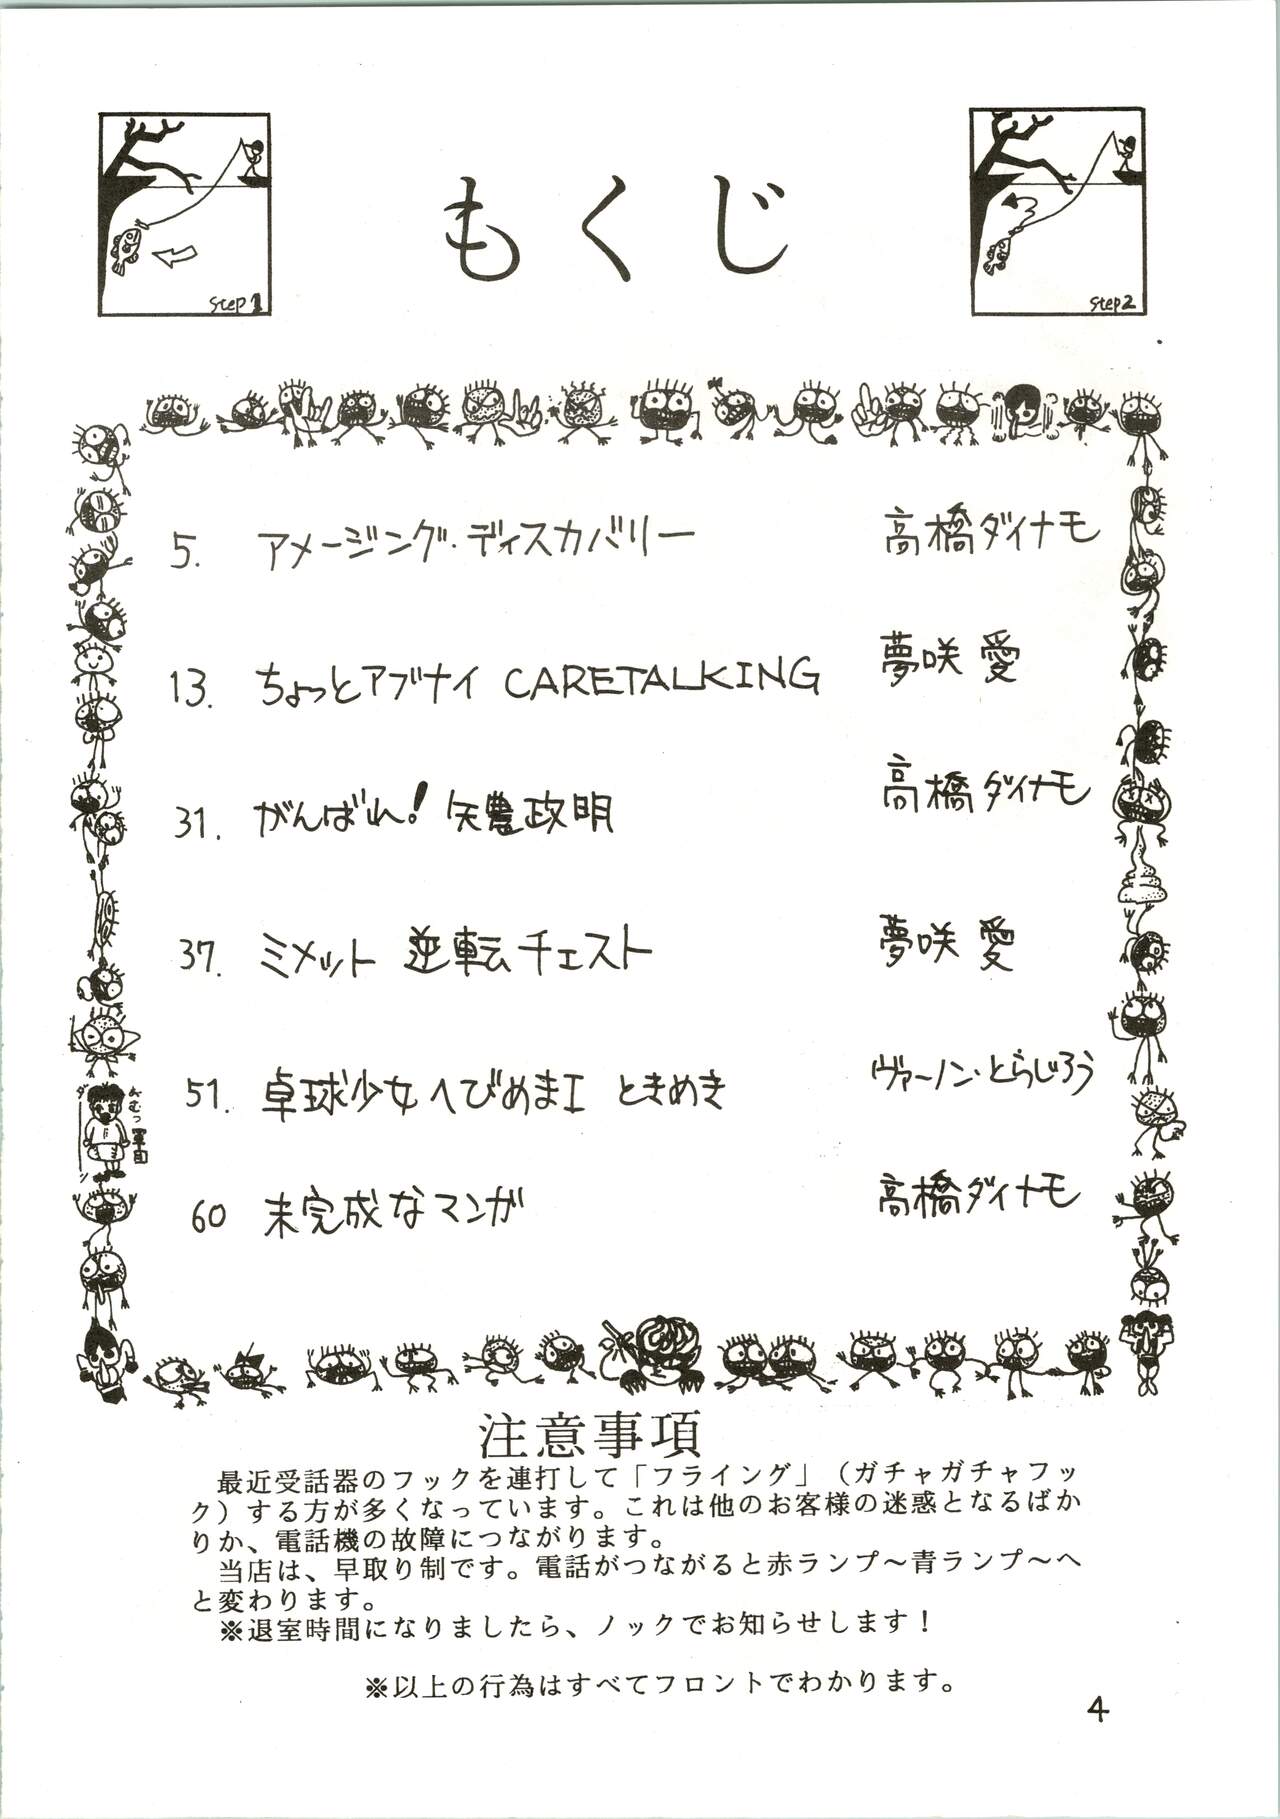 もくじ
step1
step2
5. アメージング・ディスカバリー 高橋ダイナモ
13. ちょっとアブナイ CARETALKING 夢咲 愛
31. がんばれ! 矢豊政明 高橋ダイナモ
37. ミメット 逆転チェスト 夢咲 愛
51. 卓球少女へびめまI ときめき ヴァーノン・とらじろう
60 未完成なマンガ 高橋ダイナモ
おむつ軍団
注意事項
最近受話器のフックを連打して「フライング」(ガチャガチャフッ
ク)する方が多くなっています。これは他のお客様の迷惑となるばか
りか、電話機の故障につながります。
当店は、早取り制です。電話がつながると赤ランプ〜青ランプ〜へ
と変わります。
※退室時間になりましたら、ノックでお知らせします!
※以上の行為はすべてフロントでわかります。
4